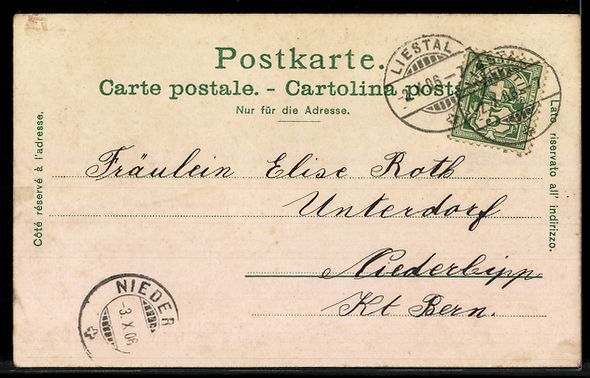 Postkarte.
Carte postale. - Cartolina posta
Nur für die Adresse.
LIESTAL
2.X.06
5
Côté réservé à l'adresse.
Lato riservato all' indirizzo.
Fräulein Elise Roth
Unterdorf
Niederbipp
Kt Bern.
NIEDER
-3.X.06